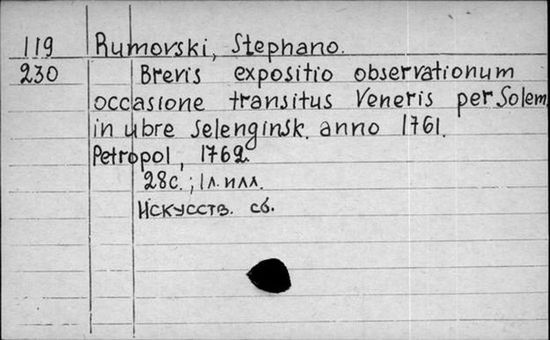 119 Rumovski, Stephano.
230 Brevis expositio observationum
occasione transitus Veneris per Solem
in urbre Selenginsk. anno 1761.
Petropol, 1762.
28с.; 1л. илл.
Искусств. сб.